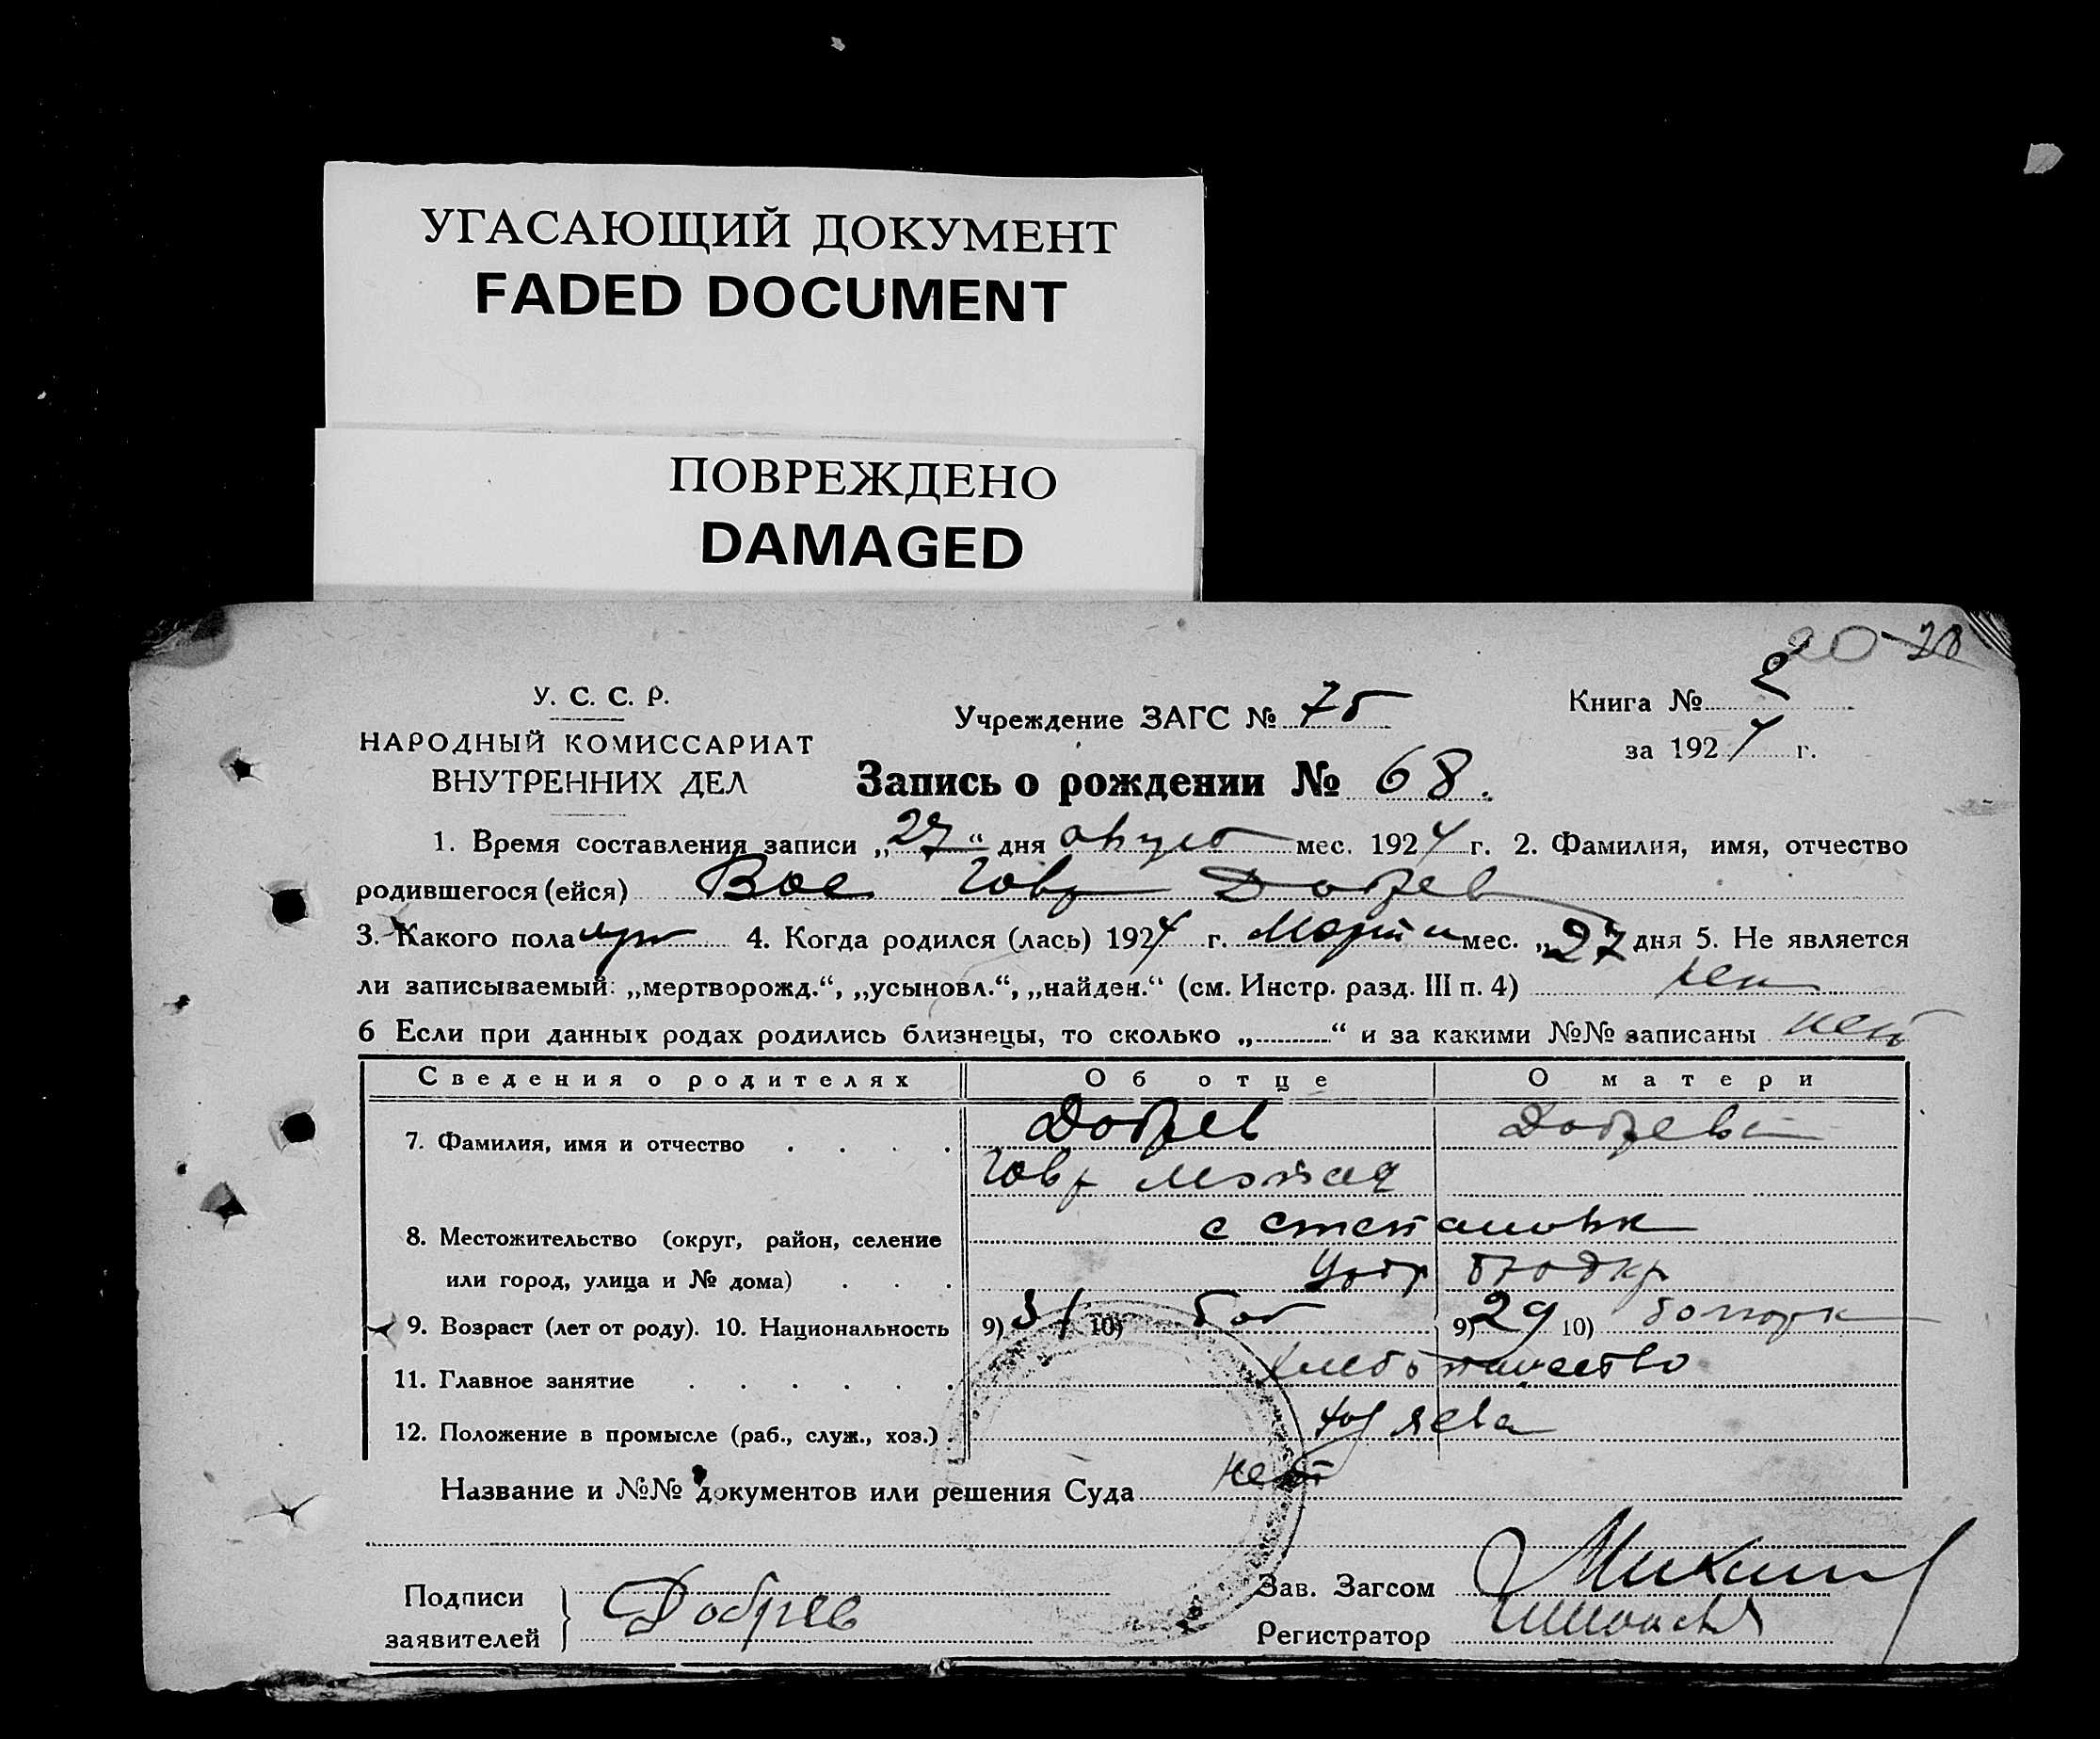 УГАСАЮЩИЙ ДОКУМЕНТ
FADED DOCUMENT
ПОВРЕЖДЕНО
DAMAGED
20 20
У. С. С. Р.
НАРОДНЫЙ КОМИССАРИАТ
ВНУТРЕННИХ ДЕЛ
Учреждение ЗАГС № 75
Книга № 2
за 1924 г.
Запись о рождении № 68.
1. Время составления записи „27“ дня август мес. 1924 г. 2. Фамилия, имя, отчество
родившегося (ейся) Добрев
3. Какого пола муж 4. Когда родился (лась) 1924 г. мес. „27 дня 5. Не является
ли записываемый: „мертворожд.“, „усыновл.“, „найден.“ (см. Инстр. разд. III п. 4) нет
6 Если при данных родах родились близнецы, то сколько „ “ и за какими №№ записаны нет
Сведения о родителях Об отце О матери
7. Фамилия, имя и отчество Добрев Добрева
8. Местожительство (округ, район, селение с
или город, улица и № дома)
9. Возраст (лет от роду). 10. Национальность 9) 31 10) 9) 29 10)
11. Главное занятие хлебопашество
12. Положение в промысле (раб., служ., хоз.)
Название и №№ документов или решения Суда нет
Подписи
заявителей Добрев
Зав. Загсом
Регистратор